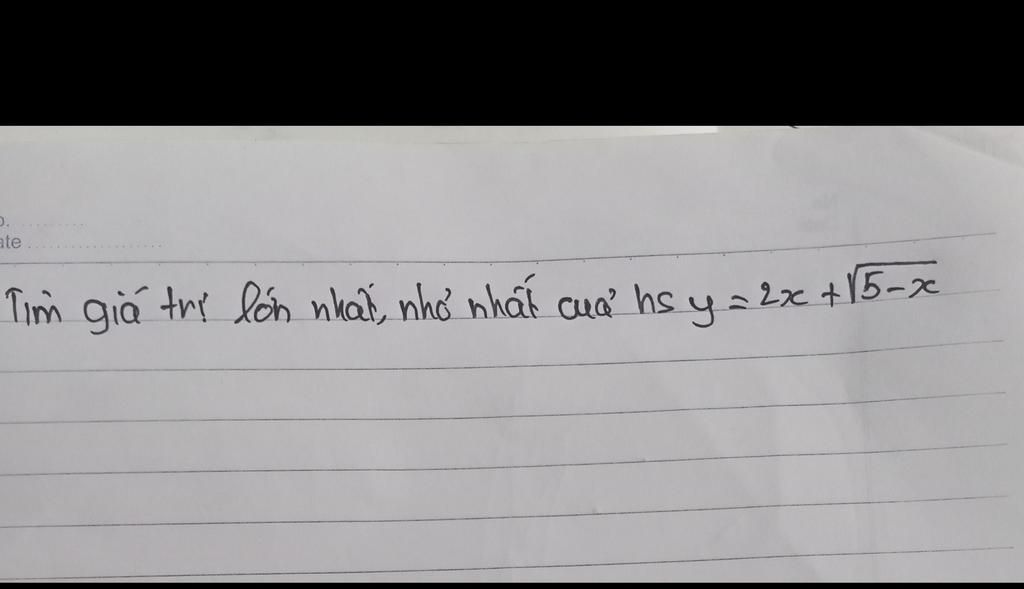 o. ..........
ate ....................
Tìm giá trị lớn nhất, nhỏ nhất của hs y = 2x + √5-x